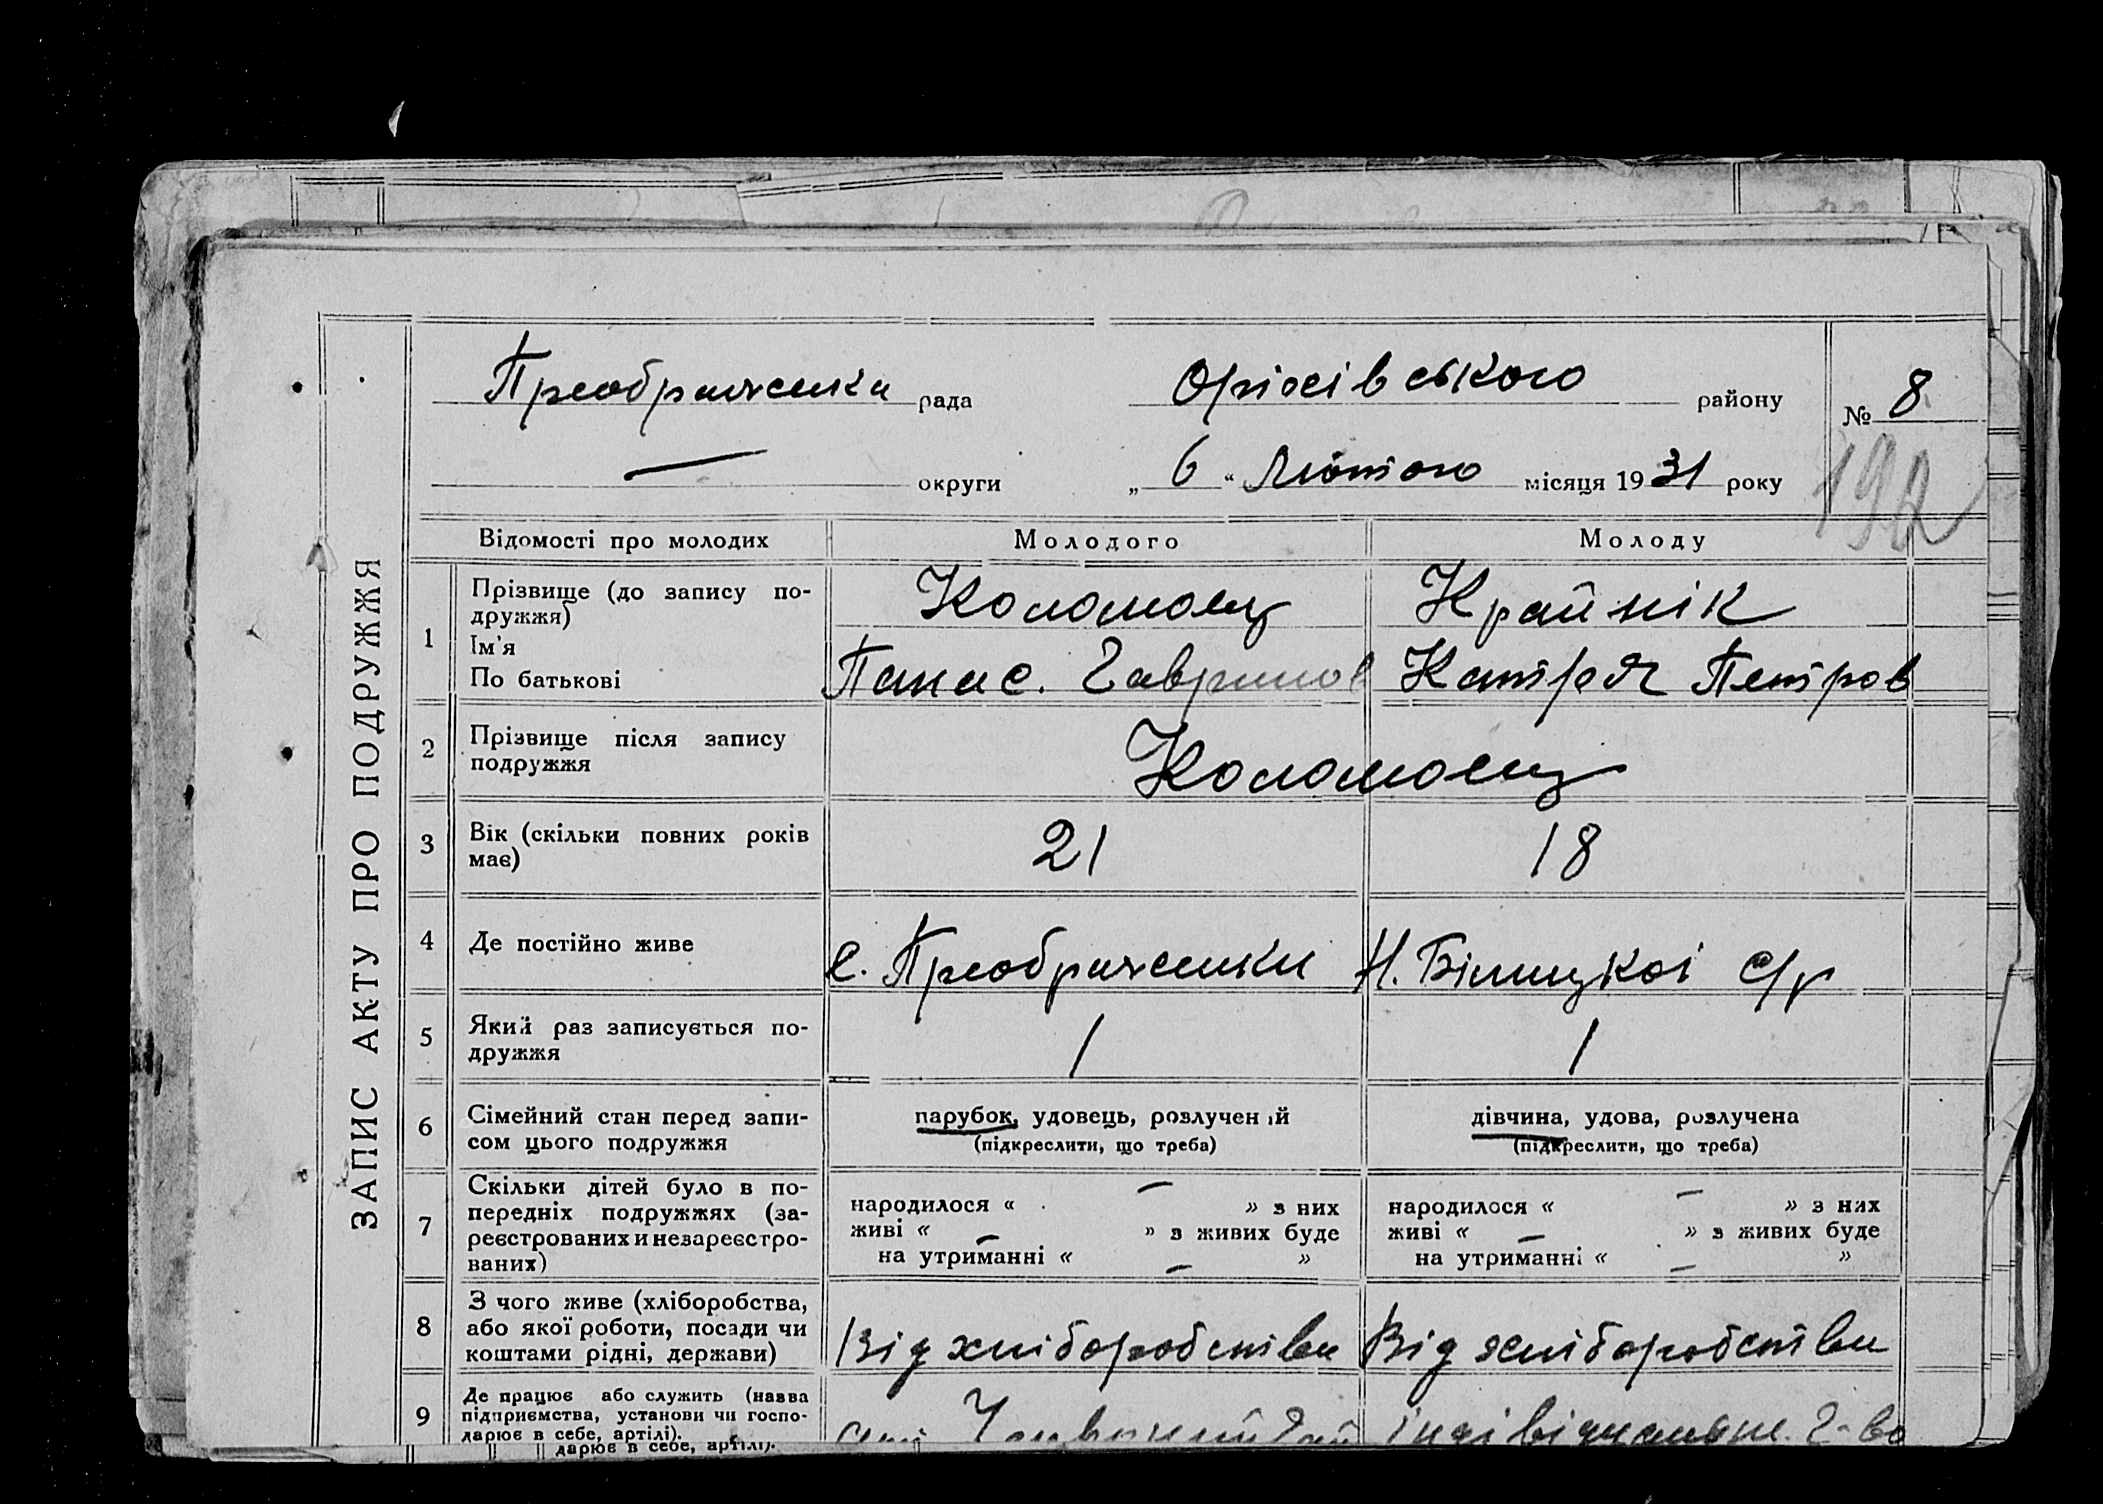 ЗАПИС АКТУ ПРО ПОДРУЖЖЯ
Преображенка рада Оріхівського району № 8
— округи „ 6 “ Лютого місяця 1931 року
192
Відомості про молодих Молодого Молоду
1 Прізвище (до запису по-
дружжя) Коломоец Крайнік
Ім'я
По батькові Панас. Гаврилов Катря Петров
2 Прізвище після запису
подружжя Коломоец
3 Вік (скільки повних років
має) 21 18
4 Де постійно живе с. Преображенки Н. Білицкоі с/р
5 Який раз записується по-
дружжя 1 1
6 Сімейний стан перед запи-
сом цього подружжя парубок, удовець, розлучений дівчина, удова, розлучена
(підкреслити, що треба) (підкреслити, що треба)
7 Скільки дітей було в по-
передніх подружжях (за-
реєстрованих и незареєстро-
ваних)
народилося « — » з них народилося « — » з них
живі « — » з живих буде живі « — » з живих буде
на утриманні « — » на утриманні « — »
8 З чого живе (хліборобства,
або якої роботи, посади чи
коштами рідні, держави) Від хліборобства Від хліборобства
9 Де працює або служить (назва
підприємства, установи чи госпо-
дарює в себе, артілі). індівідуальне. г-во
дарює в себе, артілі).